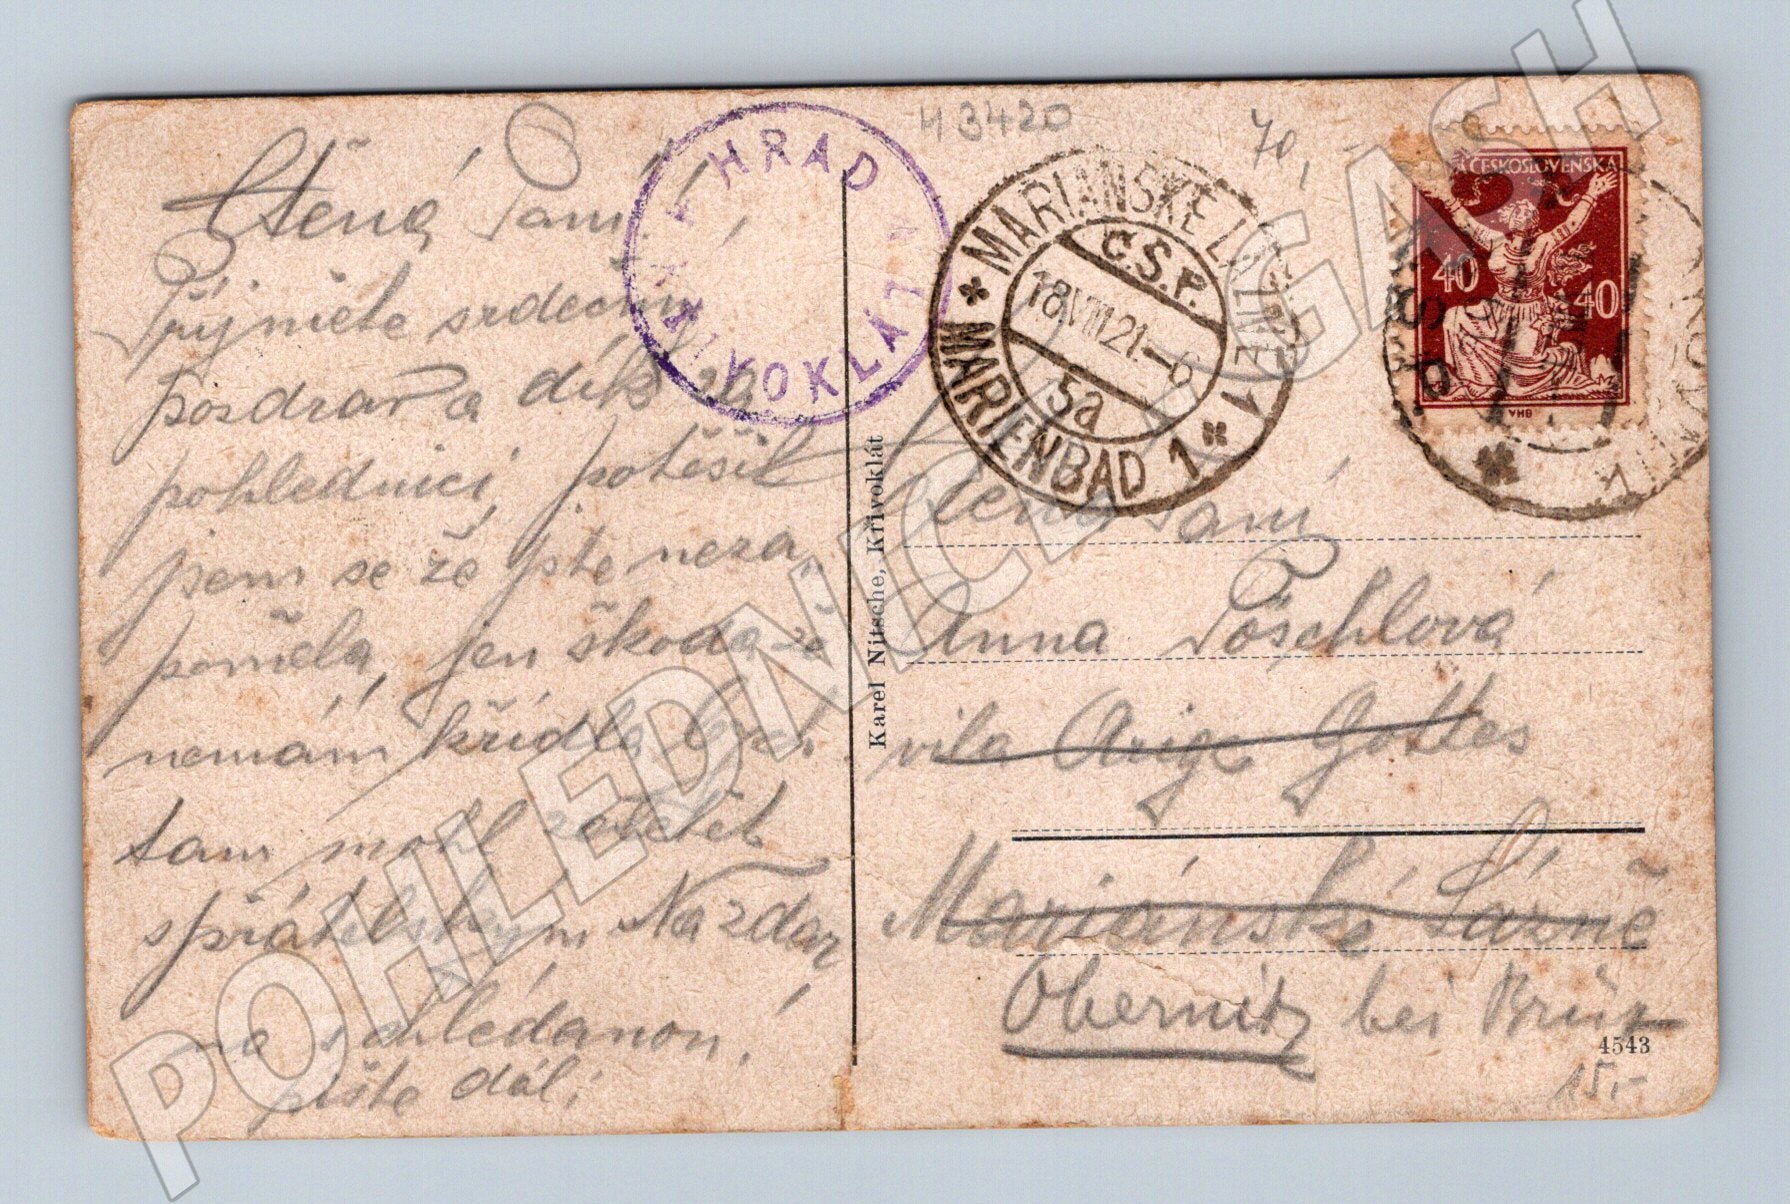 Ctěná Paní!
Přijměte srdečný
pozdrav a dík za
pohlednici, potěšil
jsem se že jste neza,
poměla, jen škoda že
nemám křídla bych
tam mohl zaletět
s přátelským Nazdar
na shledanou,
pište dál;
HRAD
KŘIVOKLÁT
H 3420
70,-
* MARIÁNSKÉ LÁZNĚ 1 *
MARIENBAD 1
Č.S.P.
18.VIII.21.-6
5a
ČESKOSLOVENSKÁ
40 40
VHB
Karel Nitsche, Křivoklát
Ctěná Paní
Anna Pöschlová
vila Gottes
Mariánské Lázně
Obernitz bei Brüx
4543
15,-
POHLEDNICE GASH